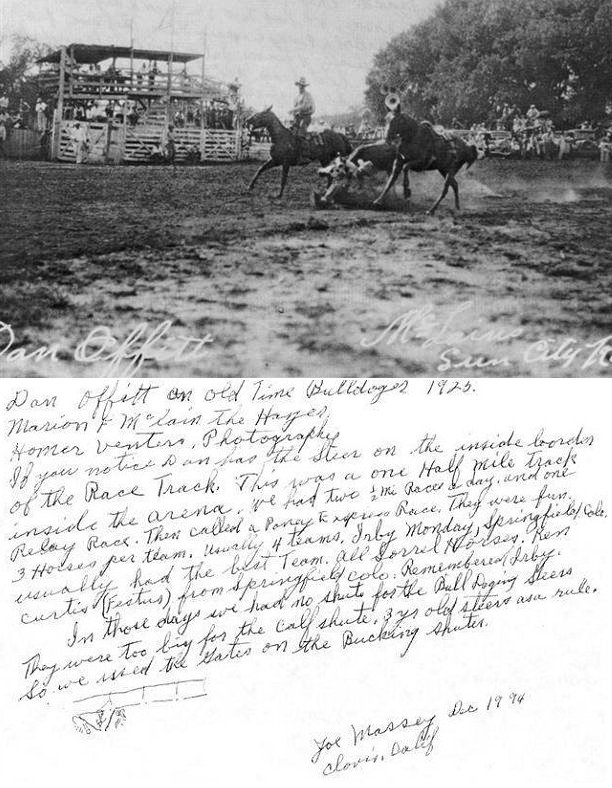 Dan Offitt
McLains
Sun City
Dan Offitt an old Time Bulldoger 1925.
Marion F McLain the Hazer,
Homer Venters, Photography
If you notice Dan has the Steer on the inside boorder
of the Race Track. This was a one Half Mile track
inside the arena. We had two 2 Mi Races a day. and one
Relay Race. Then called a Poney Express Race. They were fun.
3 Horses per team. Usually 4 teams, Irby Monday, Springfield Colo.
usually had the best Team. All Sorrel Horses. Ken
Curtis (Festus) from Springfield Colo. Remembered Irby.
In those days we had no shute for the Bull Doging Steers
They were too big for the Calf shute. 3 yr old steers as a rule.
So we used the Gates on the Bucking shutes.
Joe Massey Dec 1994
Clovis, Calif